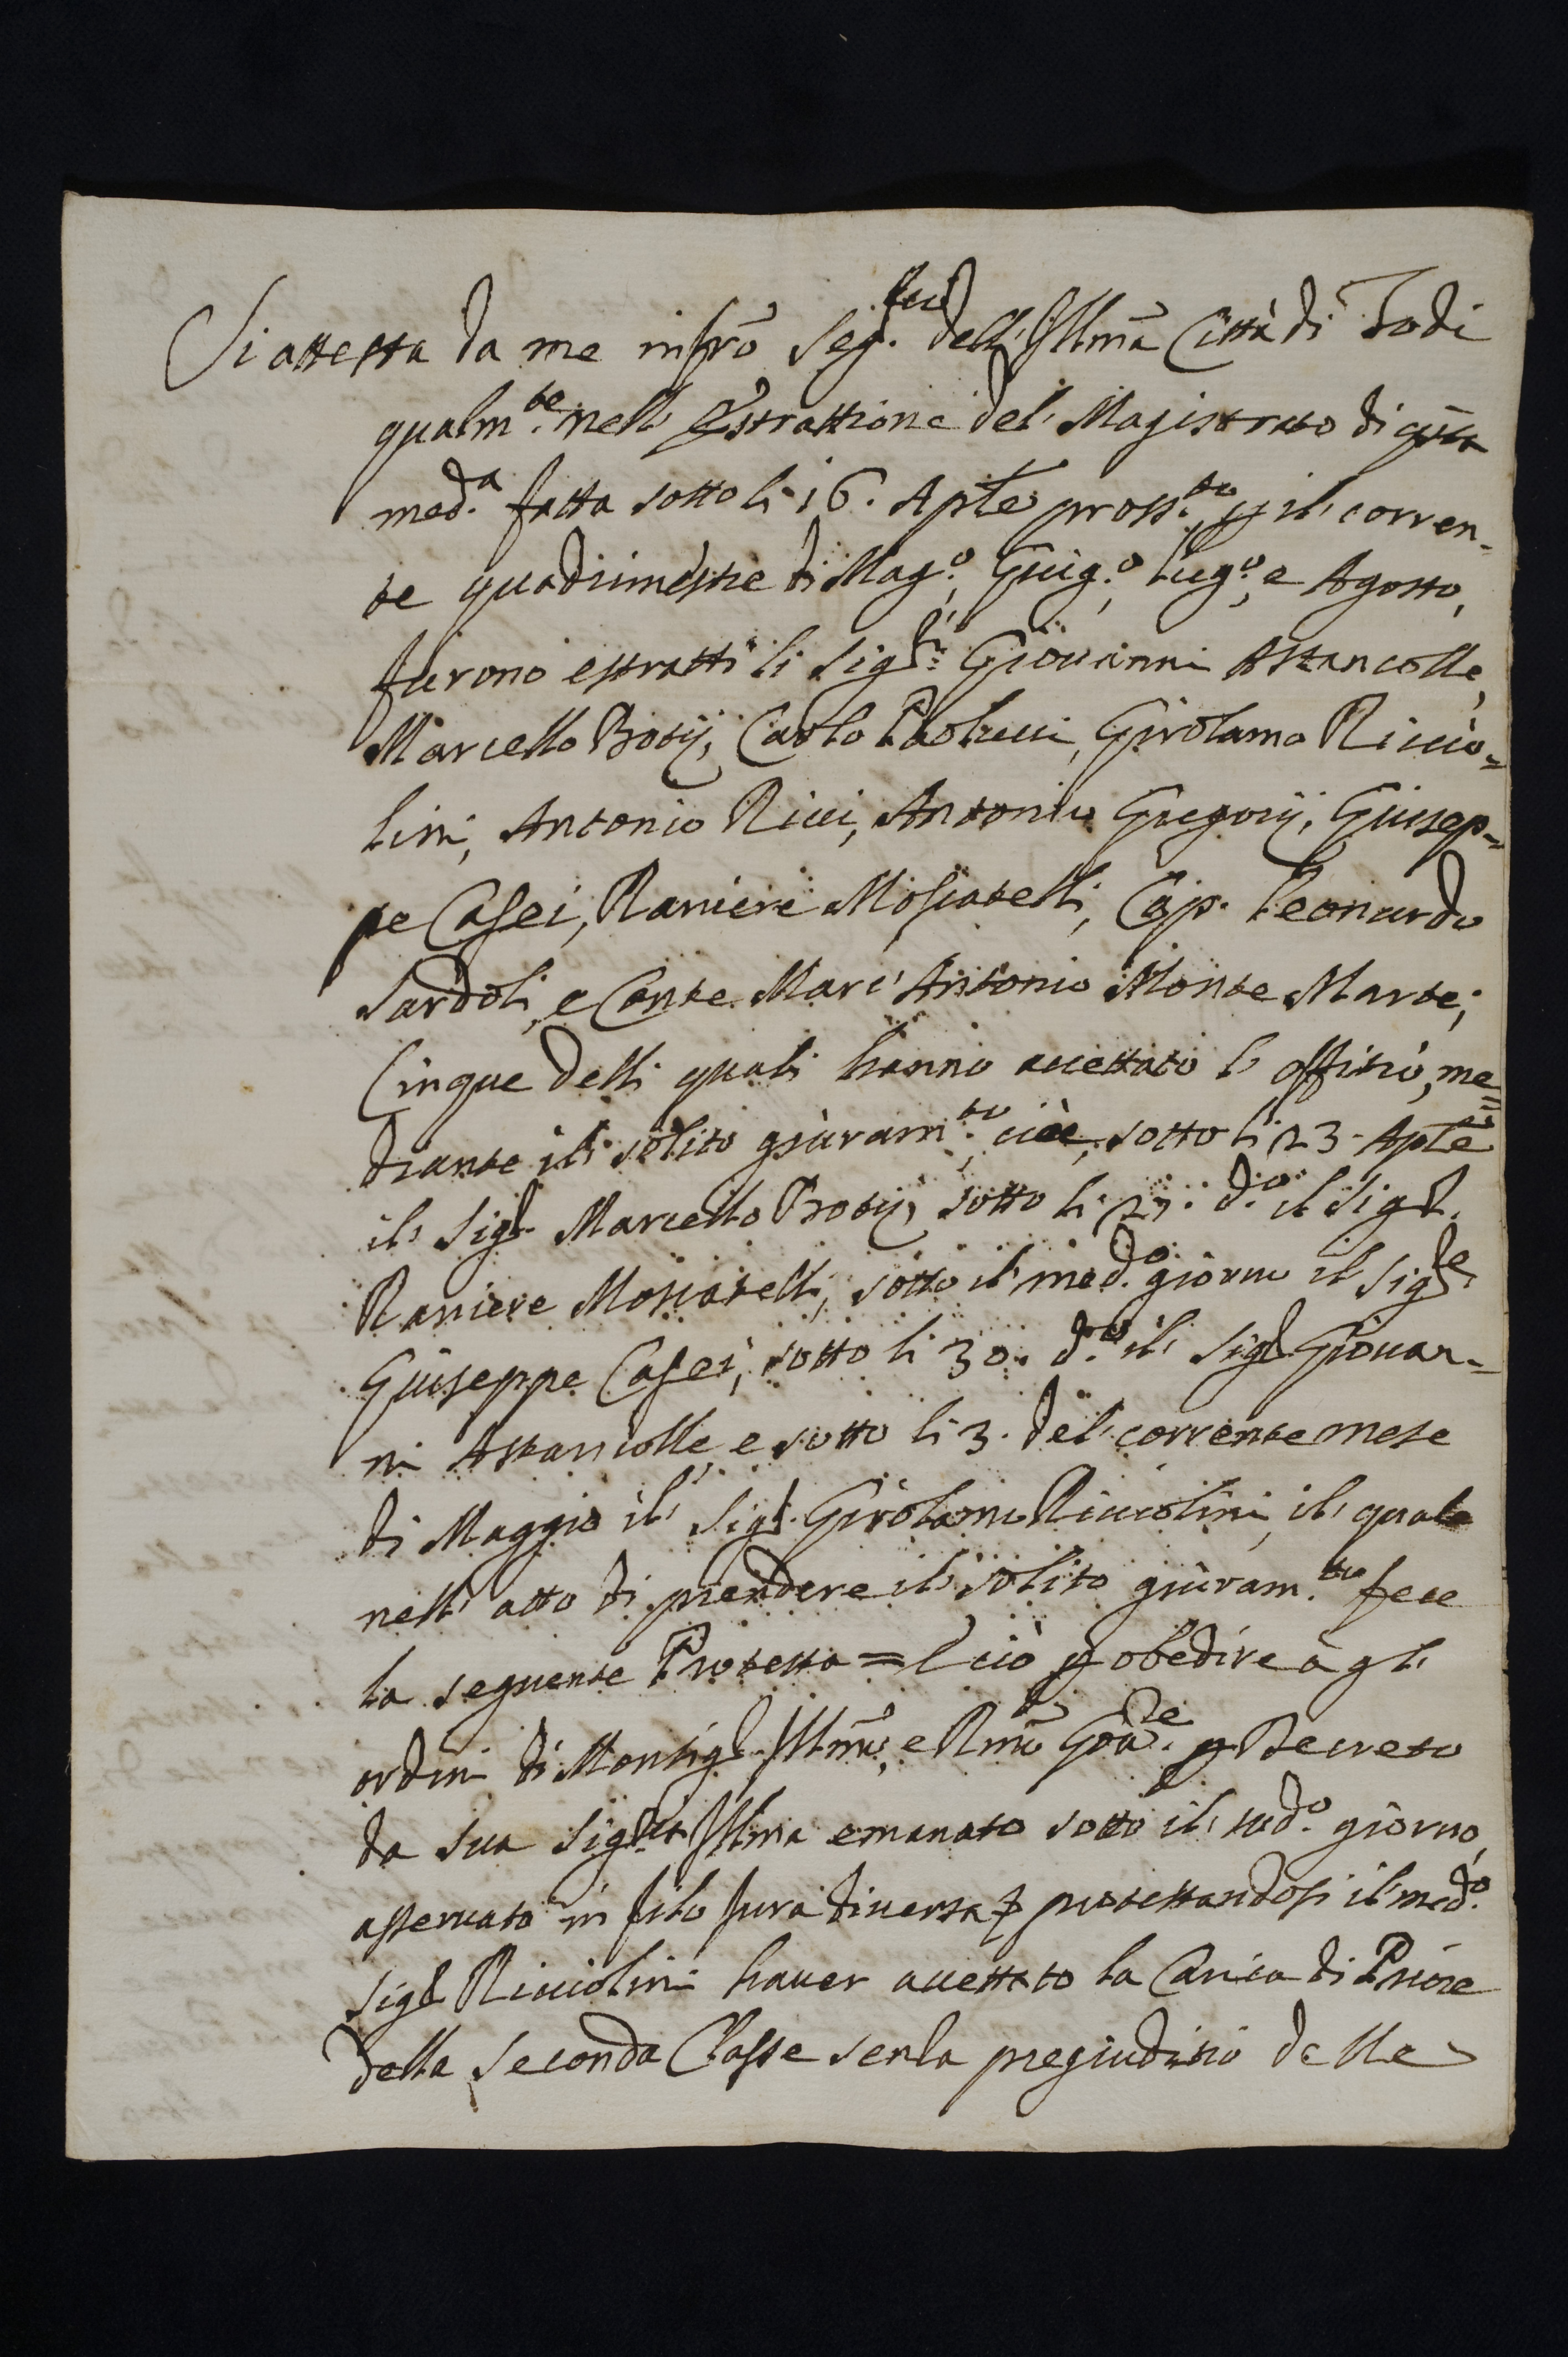 Si attesta da me infrõ Seg.rio dell' Illmã Città di Todi
qualm.te nell' Estrattione del Magistrato di q̃sta
med.a fatta sotto li 16. Aplẽ pross.to p il corren-
te quadrimestre di Mag.o, Giug.o, Lug.o, e Agosto,
furono estratti li Sig.ri Giovanni Astancolle,
Marcello Broby, Carlo Paolucci, Girolamo Riccio-
lini, Antonio Ricci, Antonio Gregorij, Giusep-
pe Casei, Raniere Moscatelli, Cap. Leonardo
Sardoli, e Conte Marc' Antonio Monte Marte;
Cinque delli quali hanno accettato l' offitio, me-
diante il solito giuram.to, cioè, sotto li 23. Aplẽ
il Sigr. Marcello Broby, sotto li 27. d.o il Sigr.
Raniere Moscatelli, sotto il med.o giorno il Sigre
Giuseppe Casei, sotto li 30. d.o il Sigr. Giovan-
ni Astancolle, e sotto li 3. del corrente mese
di Maggio il Sigr. Girolamo Ricciolini, il quale
nell' atto di prendere il solito giuram.to fece
la seguente Protesta = E ciò p obedire à gli
ordini di Monsigr. Illmõ, e Rmõ Gov.re p Decreto
da sua Sig.ria Illma emanato sotto il sud.o giorno,
asservato in filo Jura diversa, protestandosi il med.o
Sigr. Ricciolini haver accettato la Carica di Priore
della seconda Classe senza pregiuditio delle